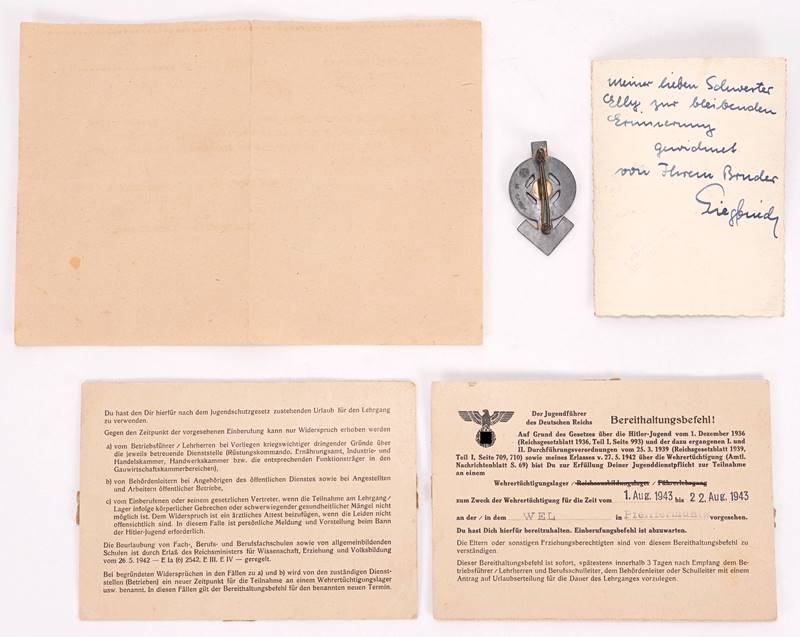 meiner lieben Schwester
Elly zur bleibenden
Erinnerung
gewidmet
von Ihrem Bruder
Siegfried
Du hast den Dir hierfür nach dem Jugendschutzgesetz zustehenden Urlaub für den Lehrgang
zu verwenden.
Gegen den Zeitpunkt der vorgesehenen Einberufung kann nur Widerspruch erhoben werden
a) vom Betriebsführer / Lehrherren bei Vorliegen kriegswichtiger dringender Gründe über
die jeweils betreuende Dienststelle (Rüstungskommando, Ernährungsamt, Industrie- und
Handelskammer, Handwerkskammer bzw. die entsprechenden Funktionsträger in den
Gauwirtschaftskammerbereichen),
b) von Behördenleitern bei Angehörigen des öffentlichen Dienstes sowie bei Angestellten
und Arbeitern öffentlicher Betriebe,
c) vom Einberufenen oder seinem gesetzlichen Vertreter, wenn die Teilnahme am Lehrgang /
Lager infolge körperlicher Gebrechen oder schwerwiegender gesundheitlicher Mängel nicht
möglich ist. Dem Widerspruch ist ein ärztliches Attest beizufügen, wenn die Leiden nicht
offensichtlich sind. In diesem Falle ist persönliche Meldung und Vorstellung beim Bann
der Hitler-Jugend erforderlich.
Die Beurlaubung von Fach-, Berufs- und Berufsfachschulen sowie von allgemeinbildenden
Schulen ist durch Erlaß des Reichsministers für Wissenschaft, Erziehung und Volksbildung
vom 26. 5. 1942 — E Ia (6) 2542, E III, E IV — geregelt.
Bei begründeten Widersprüchen in den Fällen zu a) und b) wird von den zuständigen Dienst-
stellen (Betrieben) ein neuer Zeitpunkt für die Teilnahme an einem Wehrertüchtigungslager
usw. benannt. In diesen Fällen gilt der Bereithaltungsbefehl für den benannten neuen Termin.
Der Jugendführer
des Deutschen Reichs
Bereithaltungsbefehl!
Auf Grund des Gesetzes über die Hitler-Jugend vom 1. Dezember 1936
(Reichsgesetzblatt 1936, Teil I, Seite 993) und der dazu ergangenen I. und
II. Durchführungsverordnungen vom 25. 3. 1939 (Reichsgesetzblatt 1939,
Teil I, Seite 709, 710) sowie meines Erlasses v. 27. 5. 1942 über die Wehrertüchtigung (Amtl.
Nachrichtenblatt S. 69) bist Du zur Erfüllung Deiner Jugenddienstpflicht zur Teilnahme
an einem
Wehrertüchtigungslager / Reichsausbildungslager / Führerlehrgang
zum Zweck der Wehrertüchtigung für die Zeit vom 1. Aug. 1943 bis 22. Aug. 1943
an der / in dem WEL in vorgesehen.
Du hast Dich hierfür bereitzuhalten. Einberufungsbefehl ist abzuwarten.
Die Eltern oder sonstigen Erziehungsberechtigten sind von diesem Bereithaltungsbefehl zu
verständigen.
Dieser Bereithaltungsbefehl ist sofort, spätestens innerhalb 3 Tagen nach Empfang dem Be-
triebsführer / Lehrherren und Berufsschulleiter, dem Behördenleiter oder Schulleiter mit einem
Antrag auf Urlaubserteilung für die Dauer des Lehrganges vorzulegen.